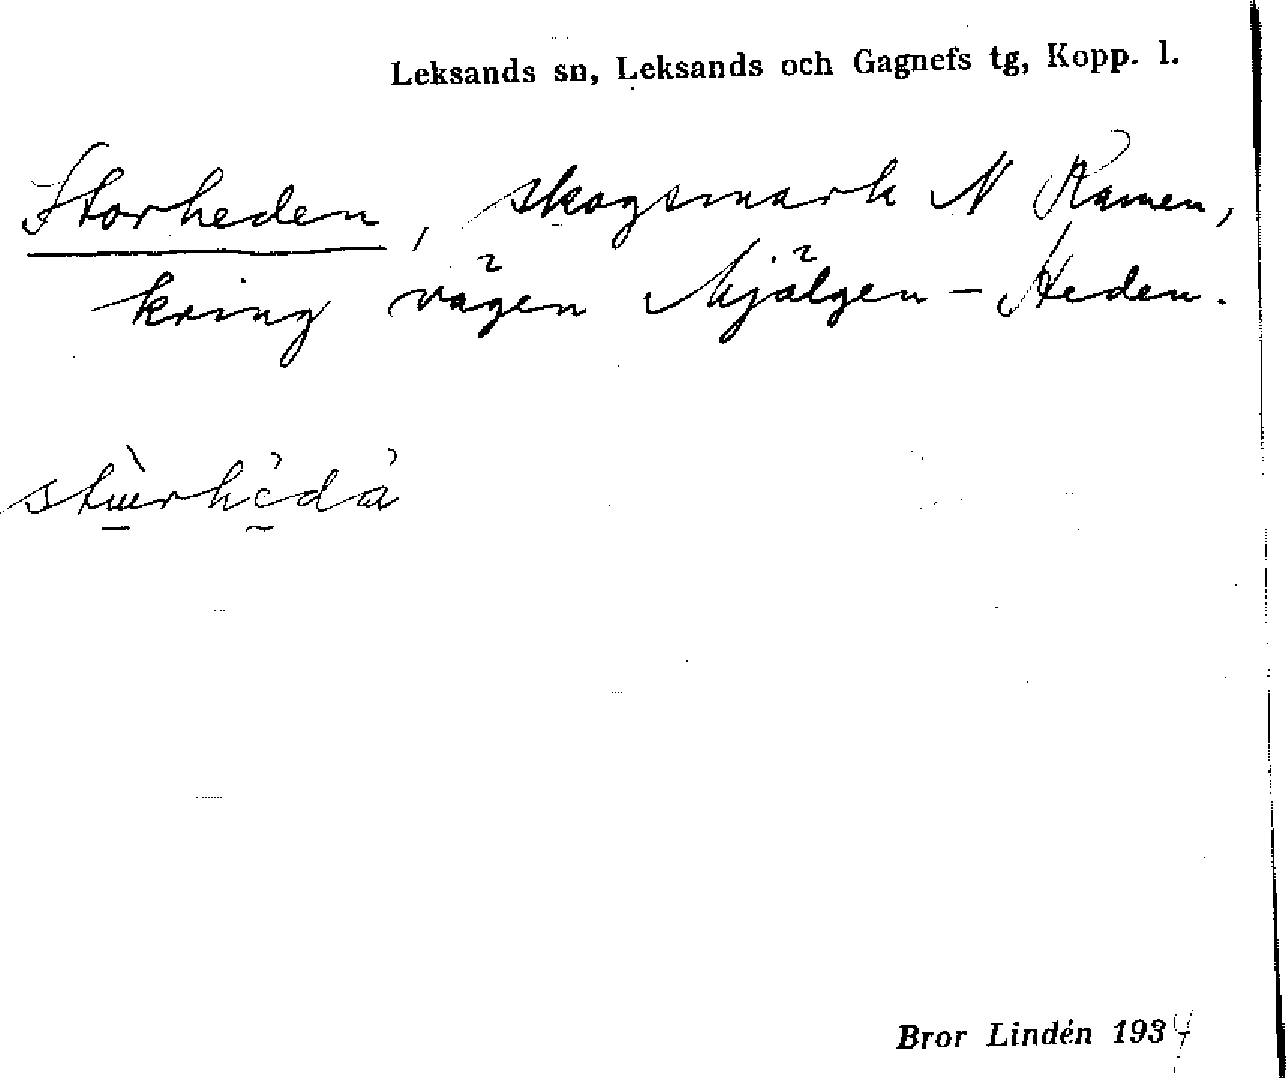 Leksands sn, Leksands och Gagnefs tg, Kopp. l.
Storheden, skogsmark N Ramen,
kring vägen Mjälgen - Heden.
Bror Lindén 1934